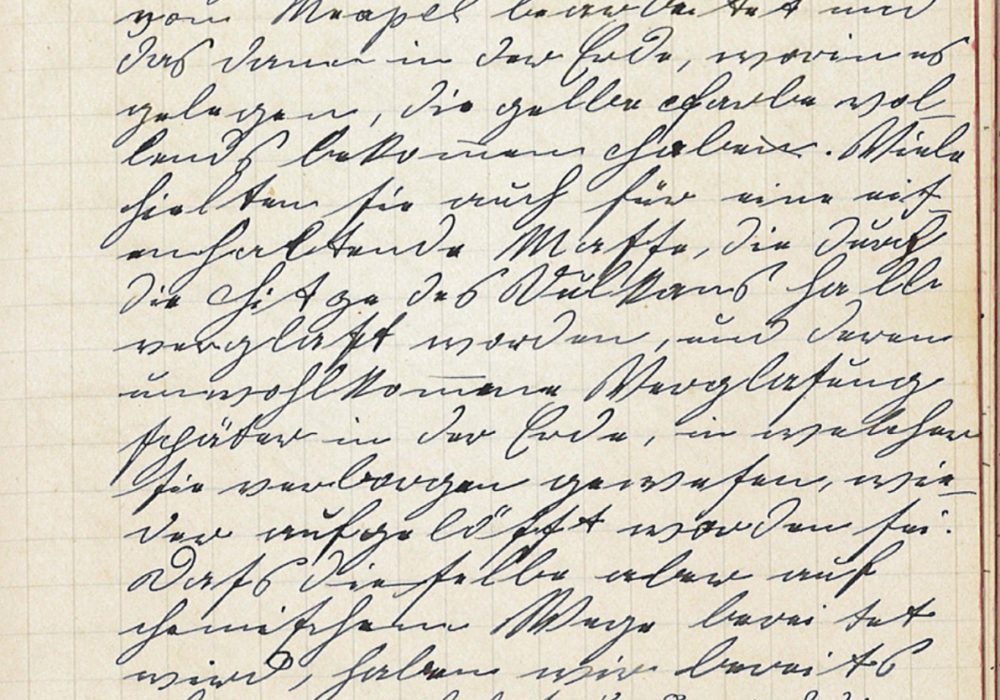 vom Meapel bearbeitet und
das dann in der Erde, worin es
gelegen, die gelbe Farbe vol-
lends bekom̅en haben. Viele
hielten sie auch für eine eis-
enhaltende Masse, die durch
die Hitze des Vulkans halb
verglast worden, und deren
unwohlkom̅ene Verglasung
später in der Erde, in welcher
sie verborgen gewesen, wie-
der aufgelöst worden sei.
Dass dieselbe aber auf
chemischem Wege bereitet
wird, haben wir bereits